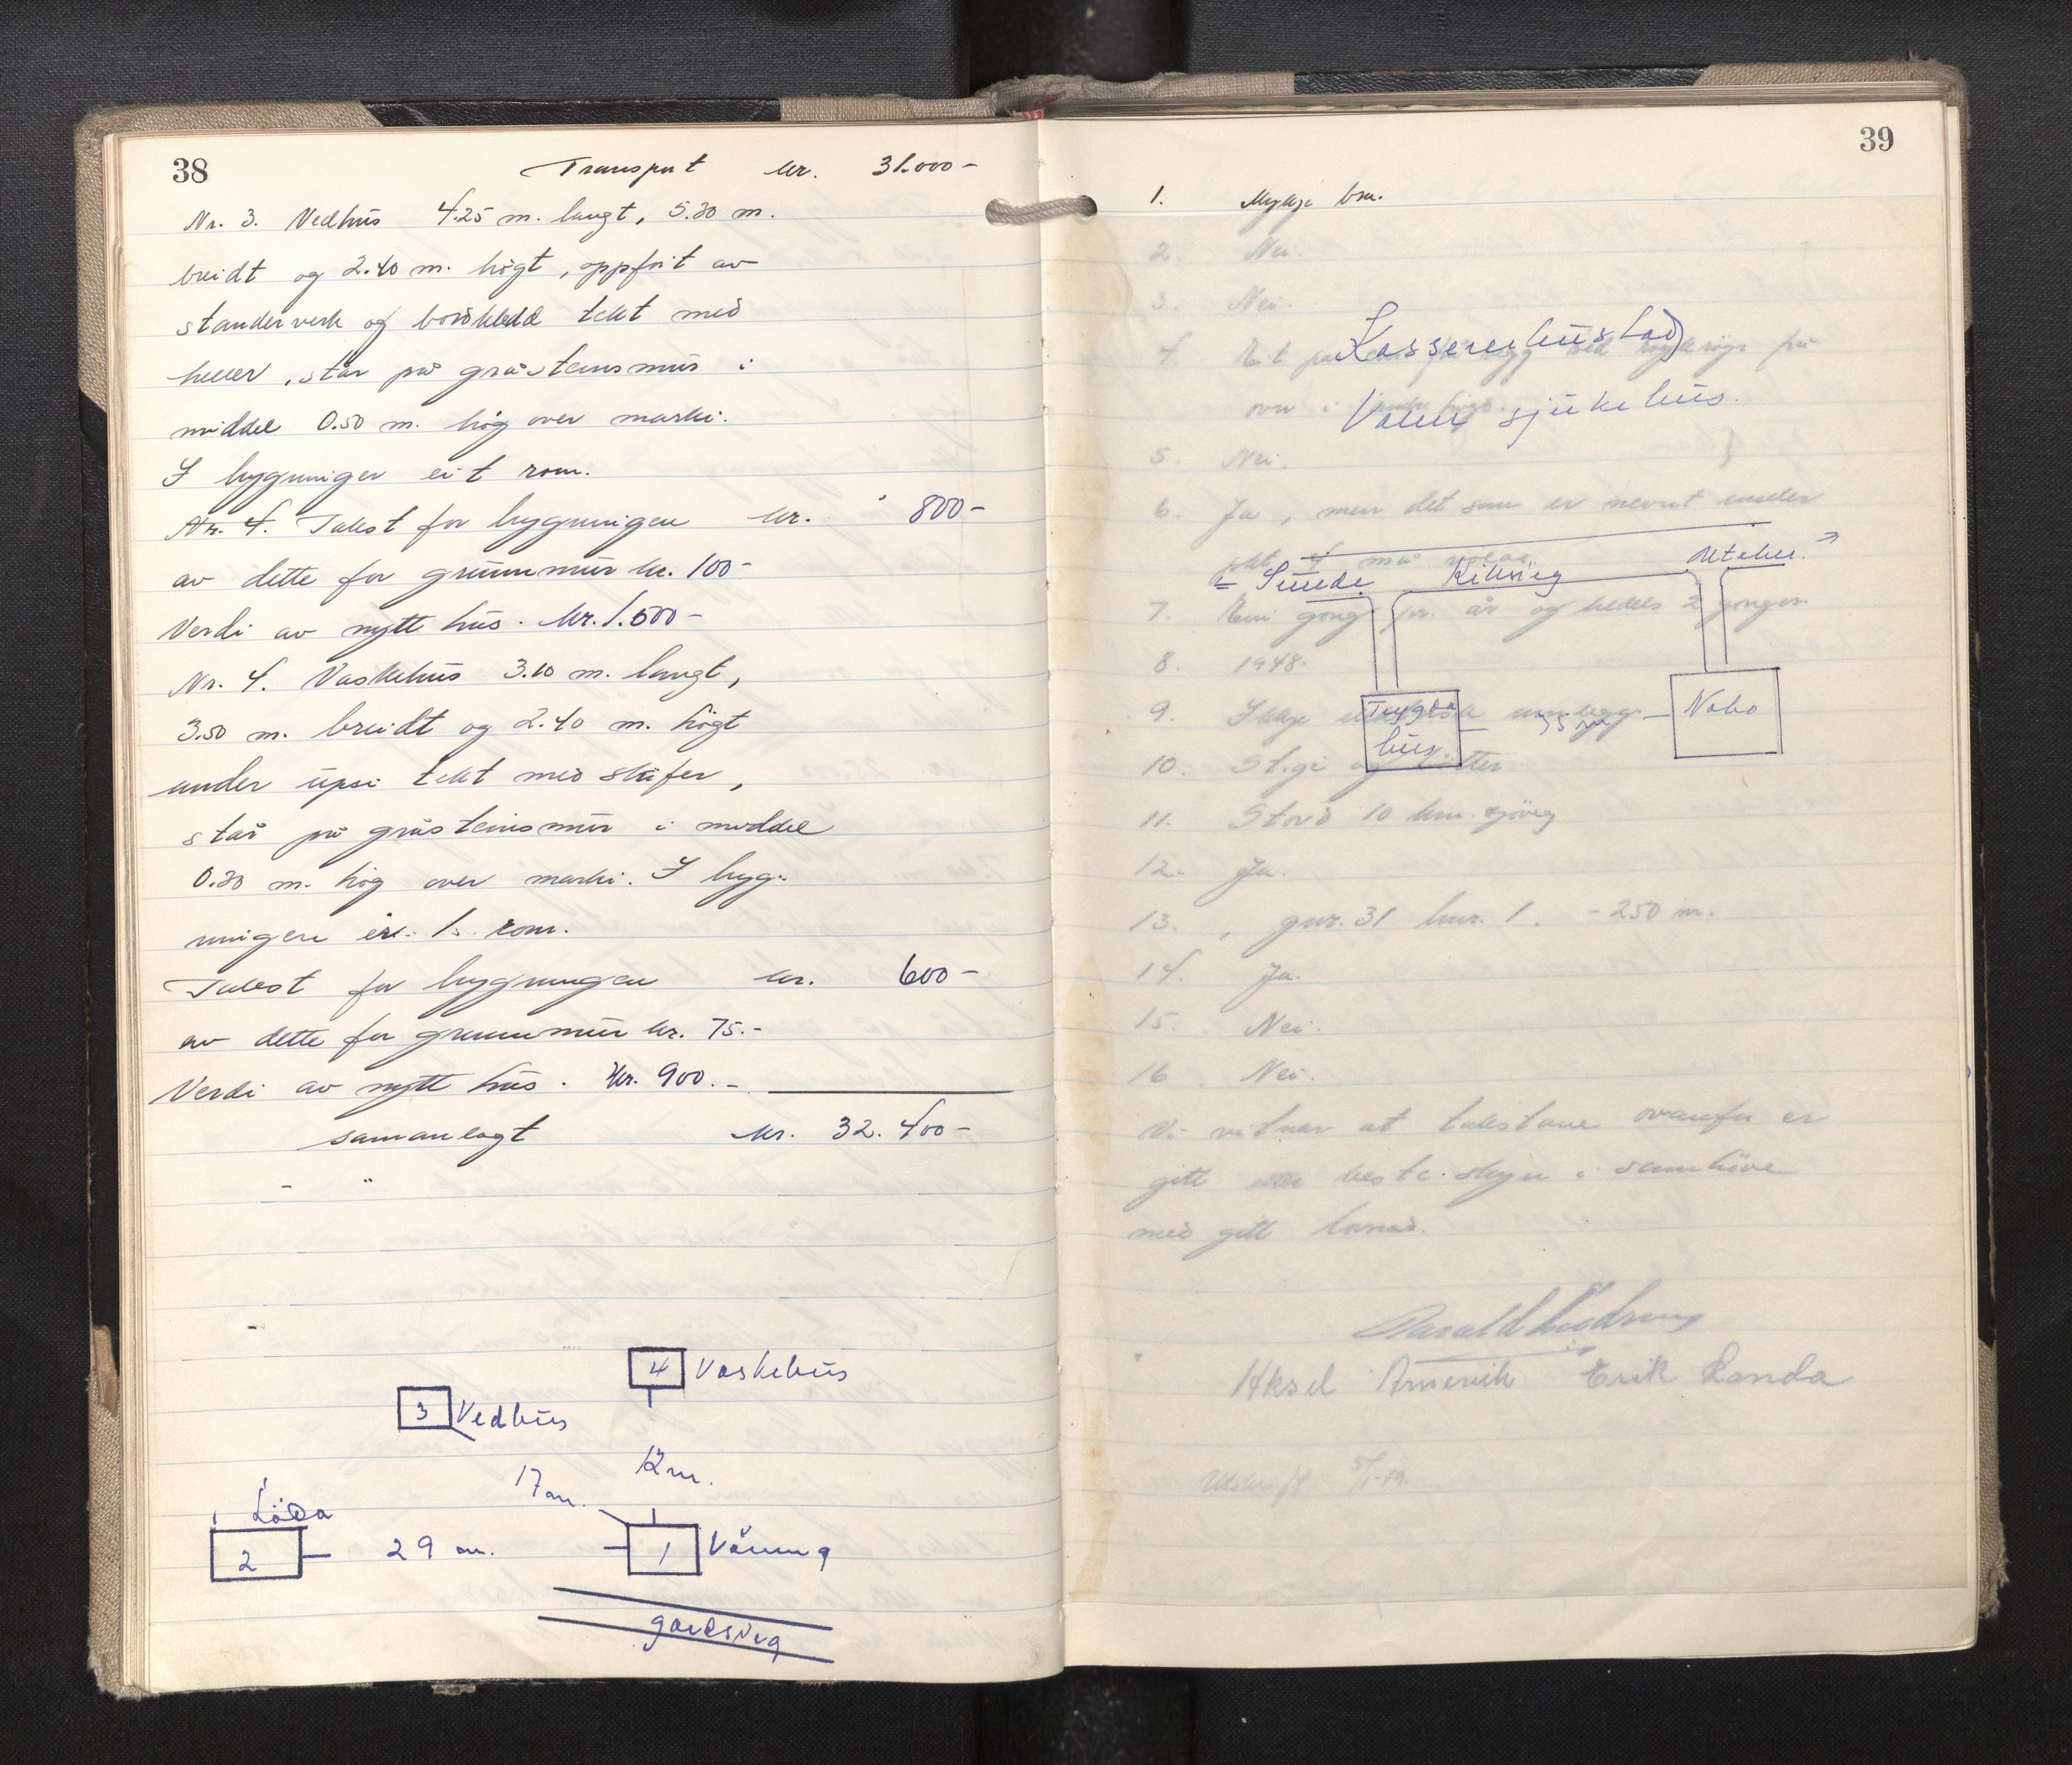 38
Transport kr. 31.000-
Nr. 3. Vedhus 4.25 m. langt, 5.30 m.
breidt og 2.40 m. högt, oppfört av
standerverk og bordkledd tekt med
heller, står på gråsteinsmur i
middel 0.50 m. hög over marki.
I bygningen eit rom.
Nr. 4. Takst for bygningen kr. 800-
av dette for grunnmur kr. 100-
Verdi av nytt hus. kr. 1.500-
Nr. 4. Vaskehus 3.10 m. langt,
3.50 m. breidt og 2.40 m. högt
under upsi tekt med skifer,
står på gråsteinsmur i middel
0.30 m. hög over marki. I byg-
ningen er 1 rom.
Takst for bygningen kr. 600-
av dette for grunnmur kr. 75.-
Verdi av nytt hus. kr. 900.-
samanlagt kr. 32.400-
- "
4 Vaskehus
3 Vedhus
12 m.
17 m.
Löda
2 29 m. 1 Våning
gardsveg
39
1. Mykje bra.
2. Nei.
3. Nei.
Kassererbustad
4. på
Valen sjukehus.
5. Nei.
6. Ja, men det som er nevnt under
pkt. 4 må
Utåker. →
← Sunde Riksveg
7. Ein gong pr. år og 2 gonger.
8. 1948.
9. Ikkje
Trygda
hus 35 m Nabo
10. Stige og
11. Stord 10 km. sjöveg
12. Ja.
13. gnr. 31 bnr. 1. - 250 m.
14. Ja.
15. Nei.
16. Nei.
Vi vitnar at takstane ovanfor er
gitt etter beste skyn i samhöve
med gitt
Harald
Aksel Arnevik Erik Landa
Utskrift 5/1-49.